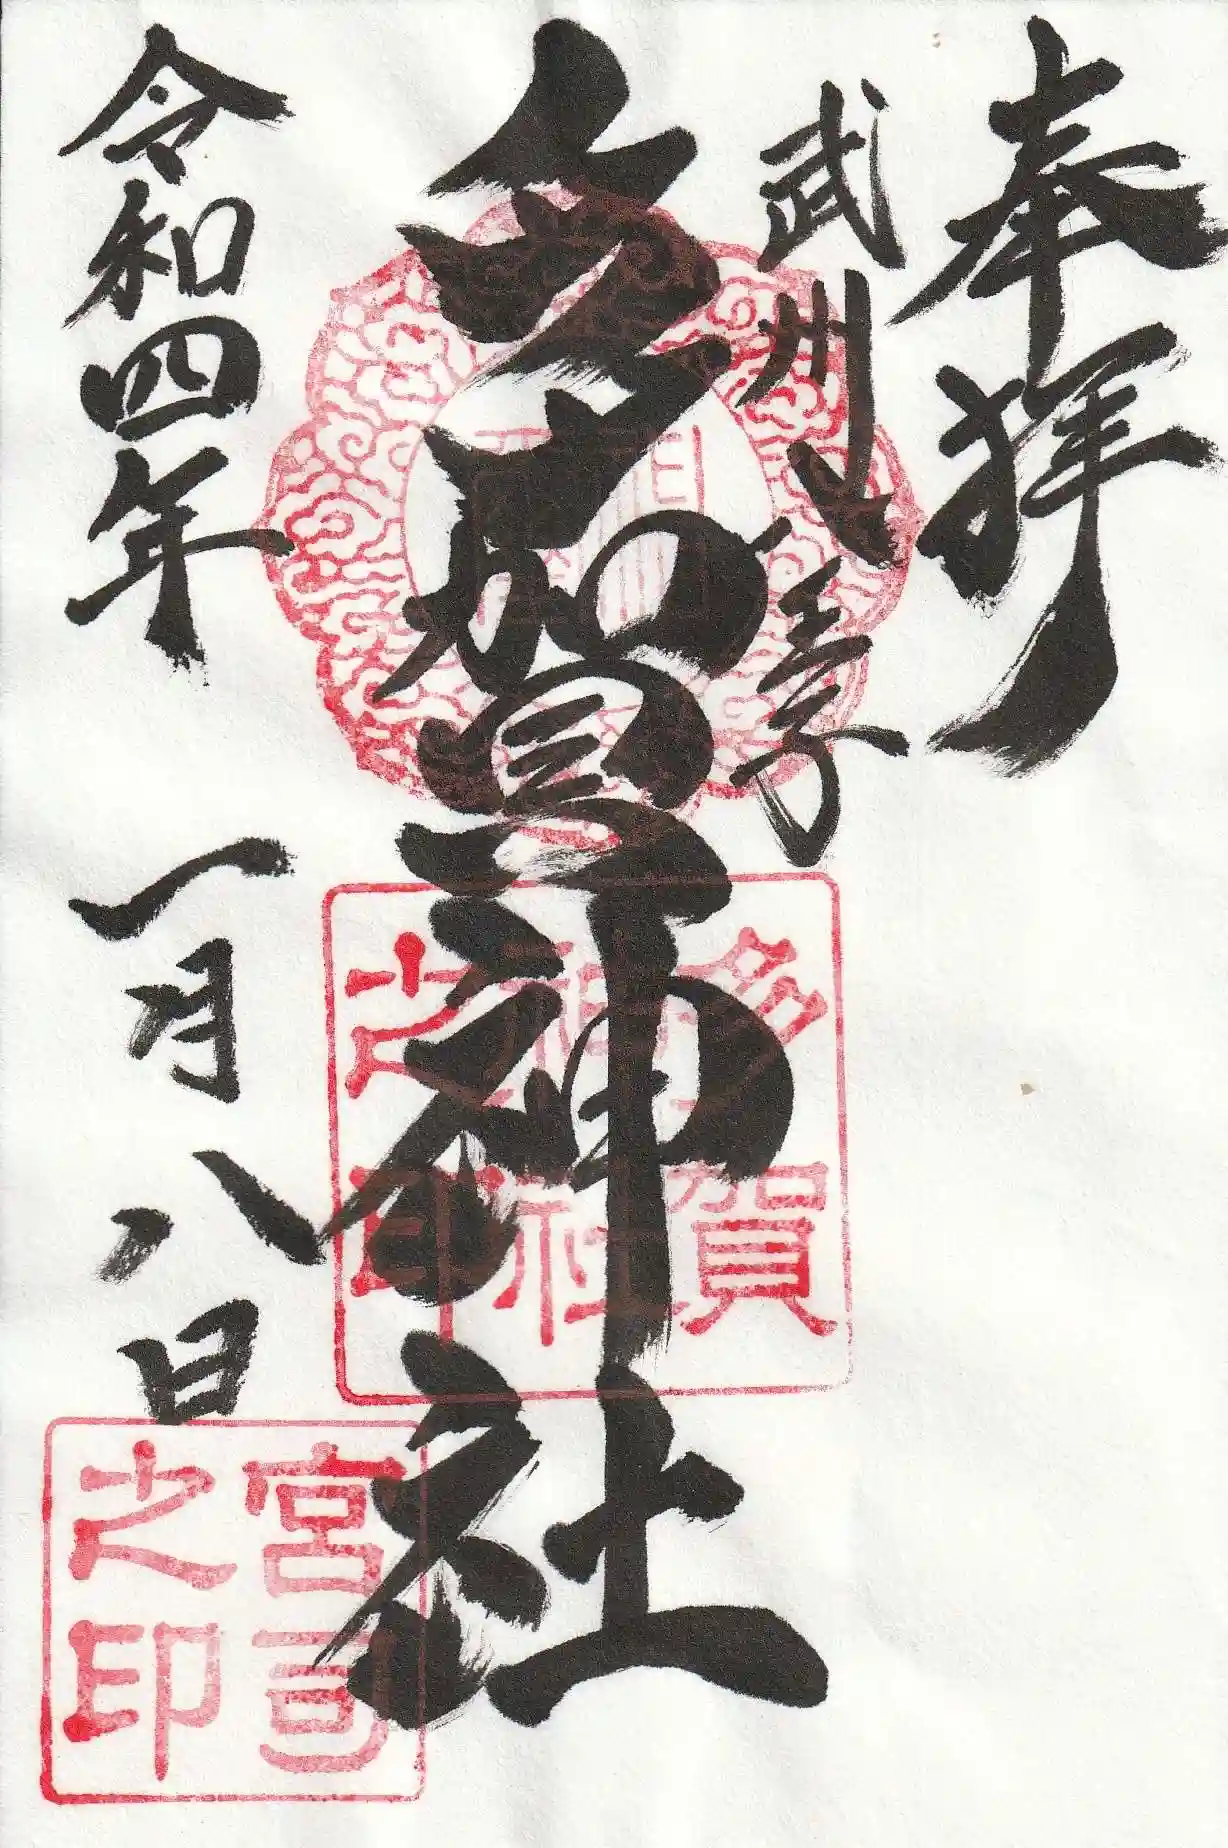 奉拝
武州八王子
多賀神社
令和四年 一月八日
多賀
神社
之印
宮司
之印